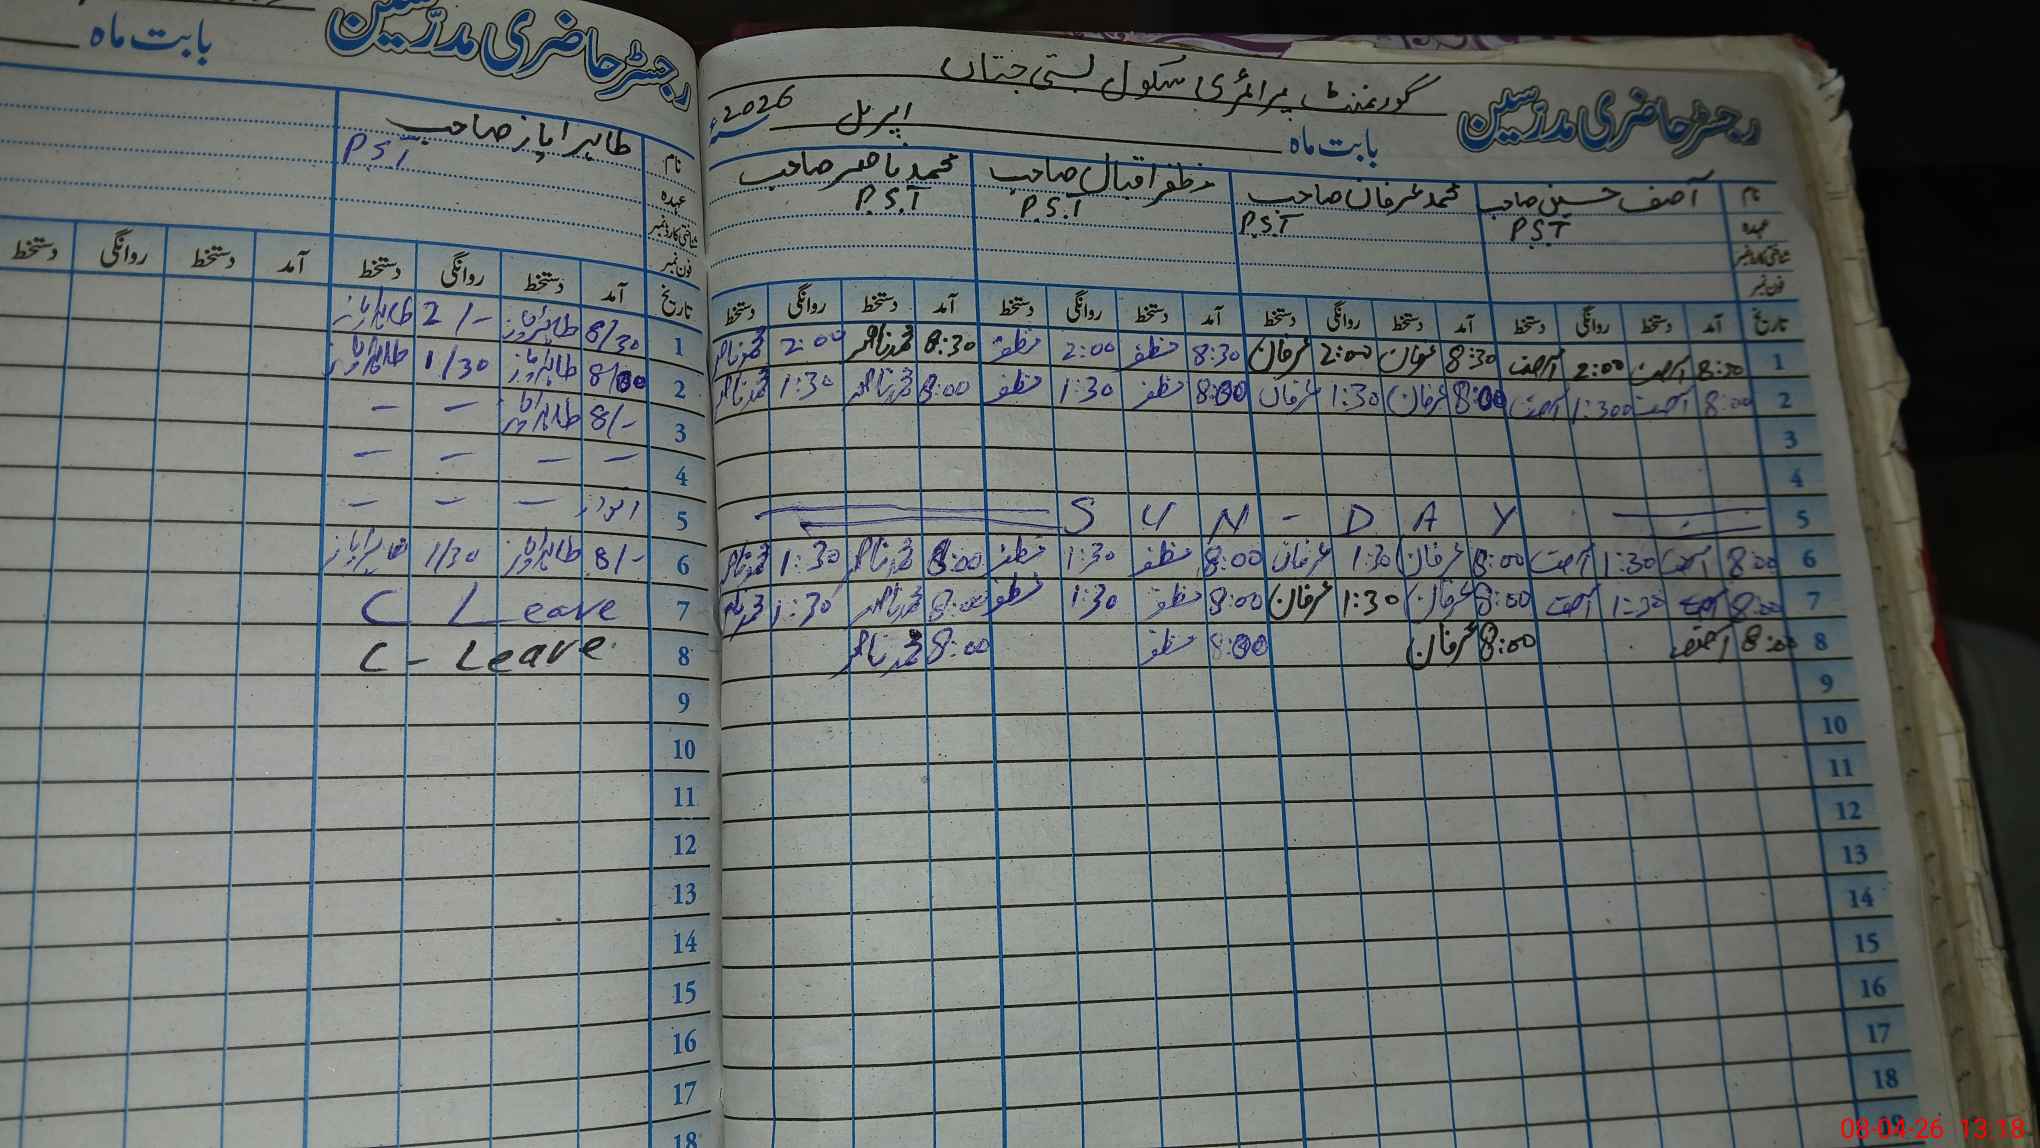 رجسٹر حاضری مدرّسین
گورنمنٹ پرائمری سکول بستی جتاں
بابت ماہ اپریل 2026ء
نام آصف حسین صاحب محمد عرفان صاحب مظفر اقبال صاحب محمد ناصر صاحب
عہدہ P.S.T P.S.T P.S.T P.S.T
شناختی کارڈ نمبر
فون نمبر
تاریخ آمد دستخط روانگی دستخط آمد دستخط روانگی دستخط آمد دستخط روانگی دستخط آمد دستخط روانگی دستخط
1 8:30 آصف 2:00 آصف 8:30 عرفان 2:00 عرفان 8:30 مظفر 2:00 مظفر 8:30 محمد ناصر 2:00 محمد ناصر
2 8:00 آصف 1:300 آصف 8:00 عرفان 1:30 عرفان 8:00 مظفر 1:30 مظفر 8:00 محمد ناصر 1:30 محمد ناصر
3
4
5 S U N - D A Y
6 8:00 آصف 1:30 آصف 8:00 عرفان 1:30 عرفان 8:00 مظفر 1:30 مظفر 8:00 محمد ناصر 1:30 محمد ناصر
7 8:00 آصف 1:30 آصف 8:00 عرفان 1:30 عرفان 8:00 مظفر 1:30 مظفر 8:00 محمد ناصر 1:30 محمد ناصر
8 8:00 آصف 8:00 عرفان 8:00 مظفر 8:00 محمد ناصر
9
10
11
12
13
14
15
16
17
18
رجسٹر حاضری مدرّسین
بابت ماہ
نام طاہر ایاز صاحب
عہدہ P.S.T
شناختی کارڈ نمبر
فون نمبر
تاریخ آمد دستخط روانگی دستخط آمد دستخط روانگی دستخط
1 8/30 طاہر ایاز 2/- طاہر ایاز
2 8/00 طاہر ایاز 1/30 طاہر ایاز
3 8/- طاہر ایاز - -
4 - - - -
5 اتوار - - -
6 8/- طاہر ایاز 1/30 طاہر ایاز
7 C Leave
8 C - Leave
9
10
11
12
13
14
15
16
17
18
08-04-26 13:18